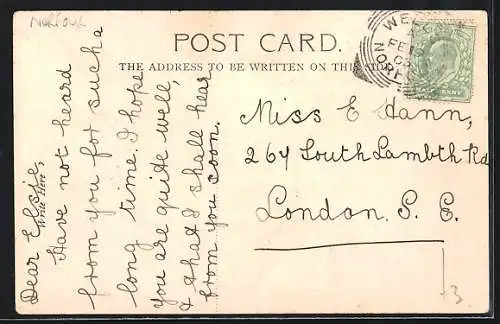 Norfolk
POST CARD.
THE ADDRESS TO BE WRITTEN ON THIS SIDE
Write Here
Dear Elsie,
Have not heard
from you for such a
long time. I hope
you are quite well,
& that I shall hear
from you soon.
Miss E Hann,
267 South Lambth Rd
London. S. E.
NORF
3